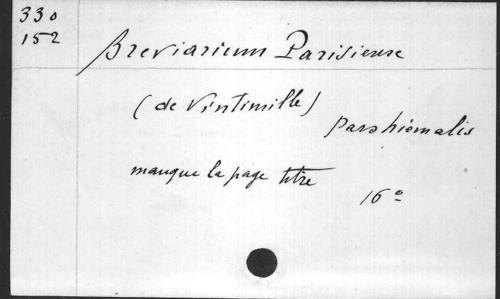 330
152
Breviarium Parisiense
(de Vintimille)
pars hiemalis
manque la page titre
16°